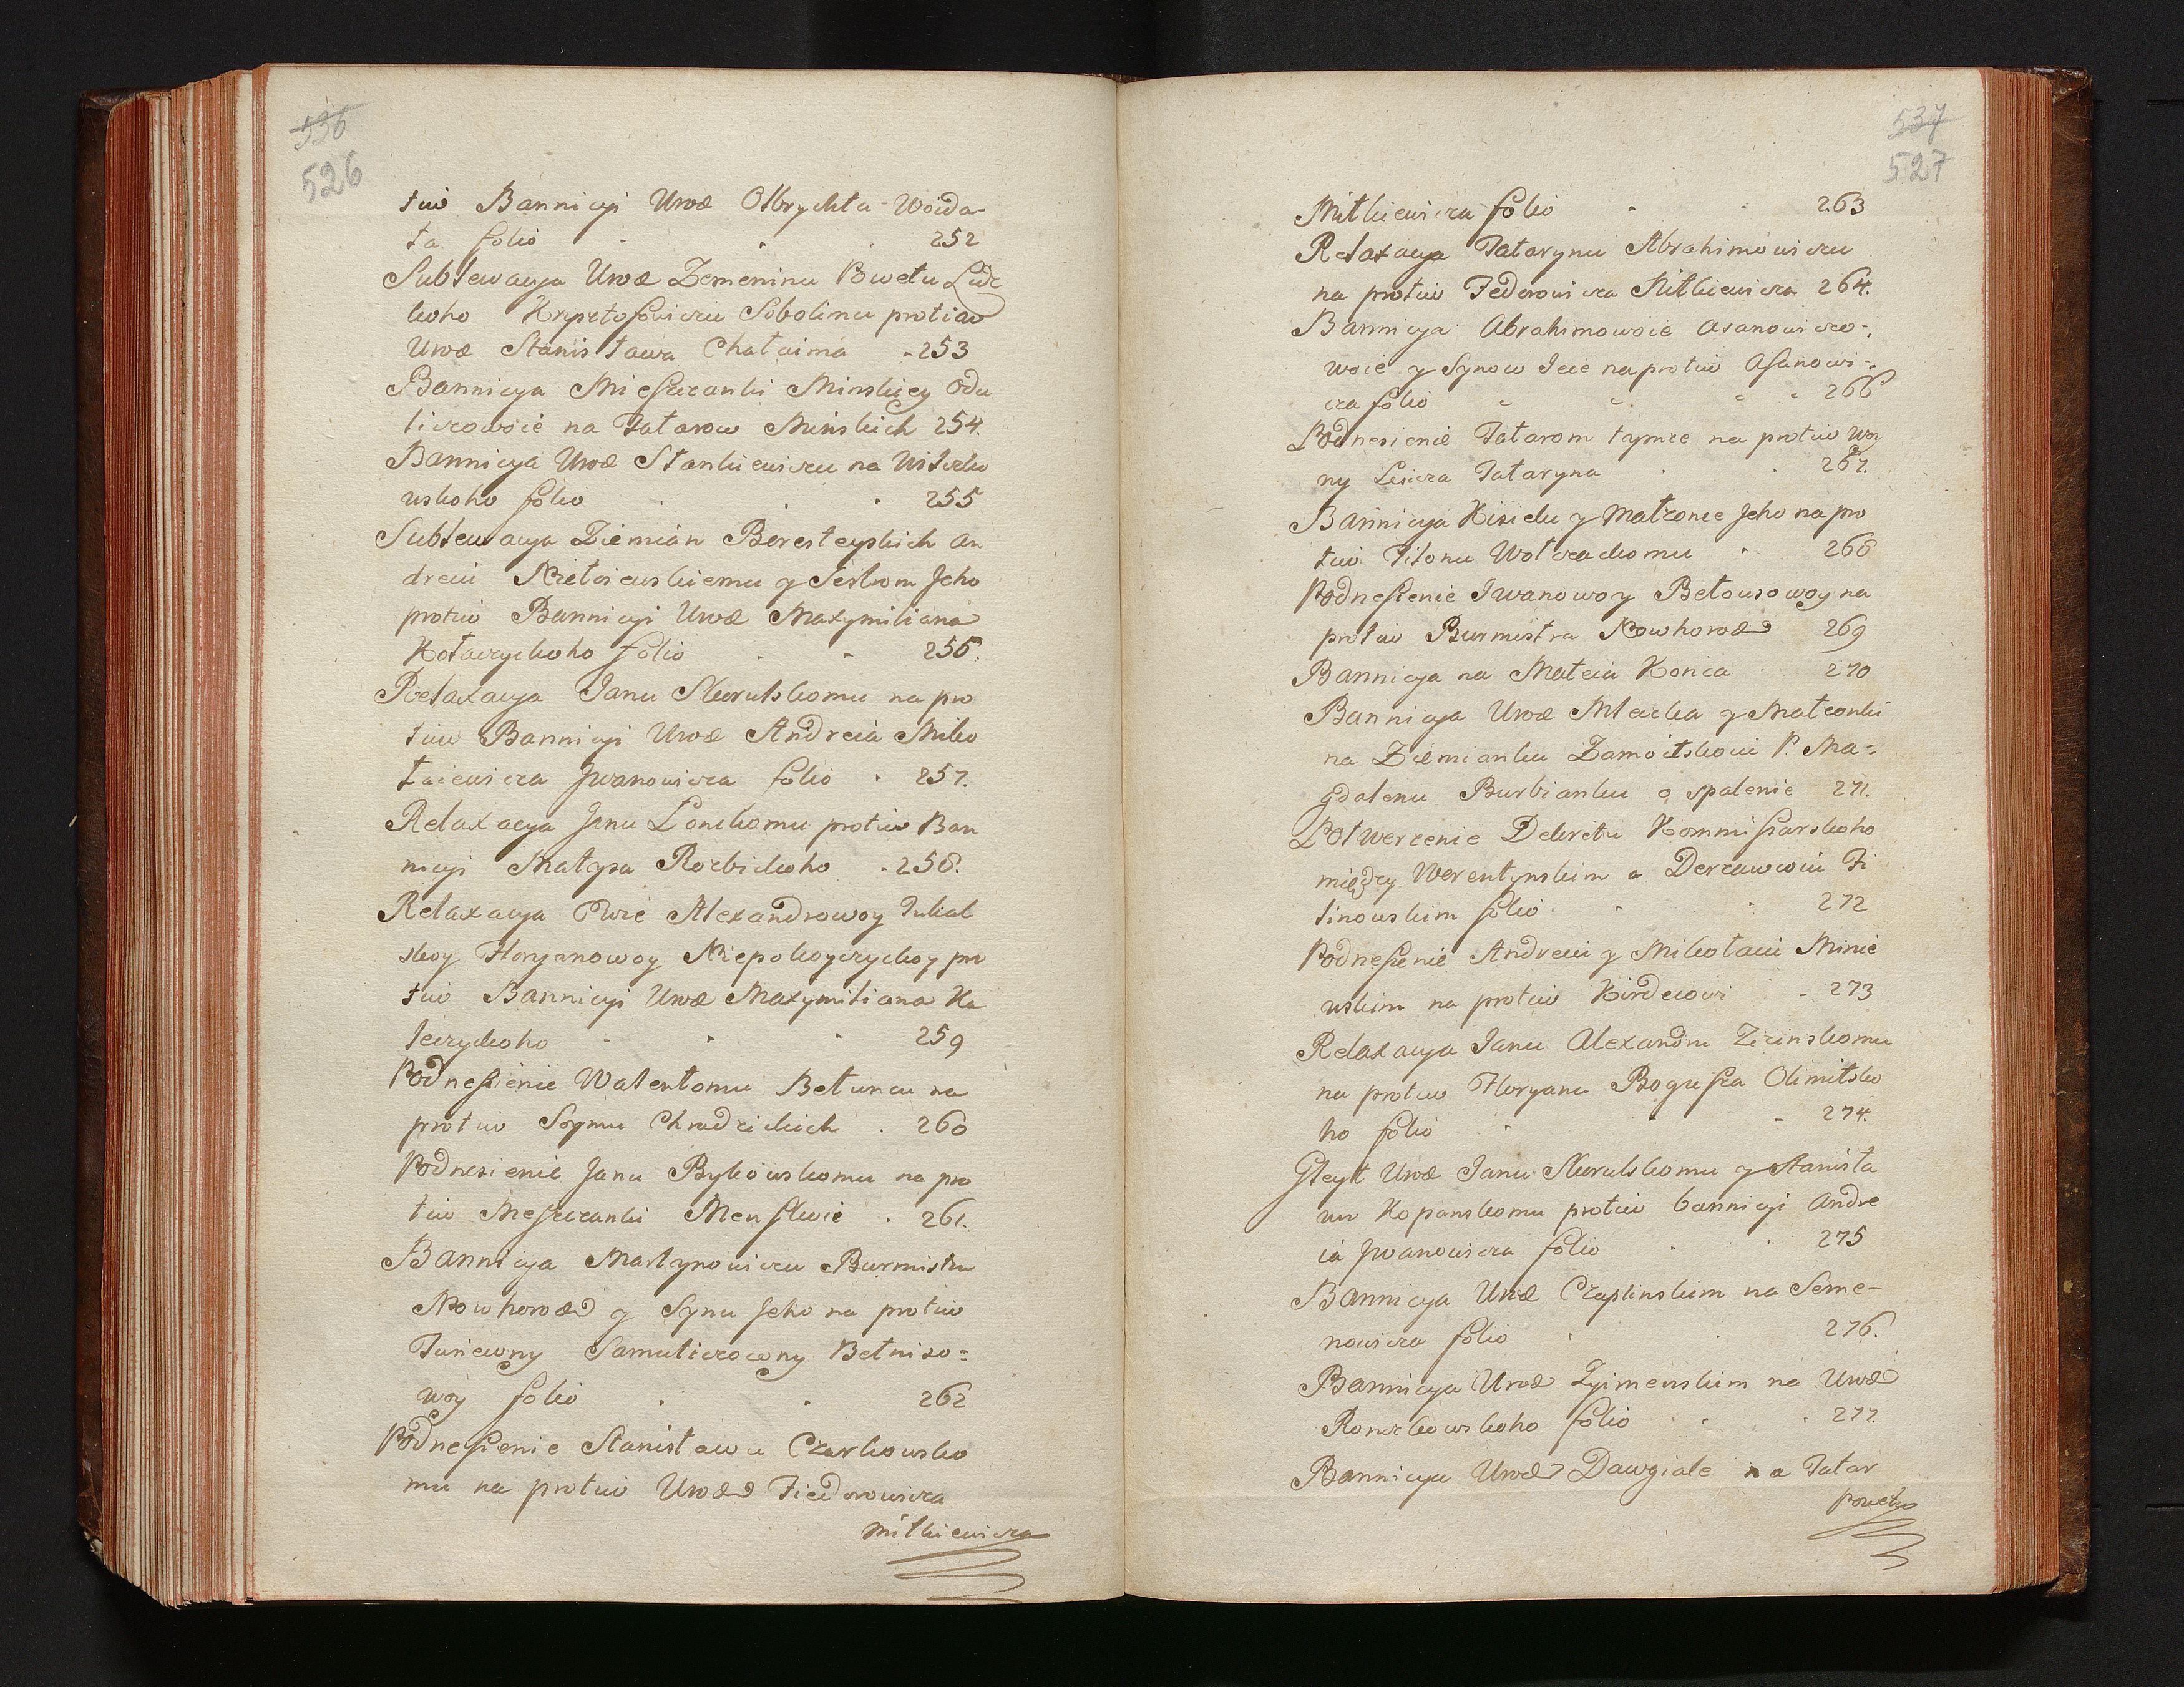 536
526
tiw Bannicyi Urod Olbrychta Woida-
ta folio 252
Sublewacya Urod Zemeninu Powetu Lidz
koho Krysztofowiczu Sobolinu protiw
Urod Stanisława Chałaima 253
Bannicya Mieszczanki Minskiey Odu
liczowoie na Tatarow Minskich 254.
Bannicya Urod Stankiewiczu na
uskoho folio 255
Sublewacya Ziemian Beresteyskich An
drein y Jeho
protiw Bannicyi Urod Maxymiliana
folio 256.
Relaxacya Janu Skurulskomu na pro
tiw Bannicyi Urod Andreia Miko
łaiewicza Jwanowicza folio 257.
Relaxacya Janu Lonckomu protiw Ban
nicyi Małysa 258.
Relaxacya Alexandrowoy
skoy Floryanowoy Niepokoyczyckoy pro
tiw Bannicyi Urod Maxymiliana Ka
leczyckoho 259
Podneszenie Walentomu Betuncu na
protiw Soymu Chradzickich 260
Podnesienie Janu Bykowskomu na pro
tiw Meszczanki Menskoie 261.
Bannicya Martynowiczu Burmistru
Nowhorod y Synu Jeho na protiw
Juriewny Samuliczowny
woy folio 262
Podneszenie Stanisławu Czarkowsko
mu na protiw Urod Fiedorowicza
Mitkiewicza
537
527
Mitkiewicza folio 263
Relaxacya Tatarynu Abrahimowiczu
na protiw Fedorowicza Mitkiewicza 264.
Bannicya Abrahimowoie Asanowiczo-
woie y Synow Jeie na protiw Asanowi-
cza folio 266
Podnesienie Tatarom tymze na protiw Woy
ny Tataryna 267.
Bannicya Kisielu y Małzonce Jeho na pro
tiw Filonu Wołczackomu 268
Podneszenie Iwanowoy Bełousowoy na
protiw Burmistra Nowhorod 269
Bannicya na Mateia Konca 270
Bannicya Urod y Małzonki
na Ziemianku Zamoitskoiu P. Ma-
gdalenu Burbianku o spalenie 271.
Potwerzenie Dekretu Kommissarskoho
miedzy Werentynskim a Derzawcoiu Fi
linowskim folio 272
Podneszenie Andreiu y Mikołaiu Minie
uskim na protiw 273
Relaxacya Janu Alexandru Zirinskomu
na protiw Floryana Bogusza Olimitsko
ho folio 274.
Gleyt Urod Janu Skurulskomu y Stanisła
wu Kopanskomu protiw bannicyi Andre
ia Jwanowicza folio 275
Bannicya Urod Czaplinskim na Seme-
nowicza folio 276.
Bannicya Urod Zyimenskim na Urod
folio 277.
Bannicya Urod Dawgiale na Tatar
powetu